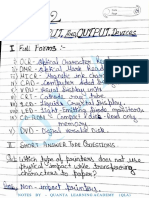 2
INPUT And OUTPUT Devices
I. Full Forms :-
1) OCR - Optical Character Reader
2) OMR - Optical Mark Reader
3) MICR - Magnetic Ink Character
4) VDU - Visual Display Unit
5) CRT - Cathode Ray Tube
6) LCD - Liquid Crystal Display
7) LED - Light Emitting Diode
8) CD-ROM - Compact Disk - Read only memory
9) DVD - Digital Versatile Disk.
II. SHORT ANSWER TYPE QUESTIONS
Which type of printers does not use physical impact while transferring characters to paper?
Non-impact printers
NOTES BY - QUANTA LEARNING ACADEMY (QLA)